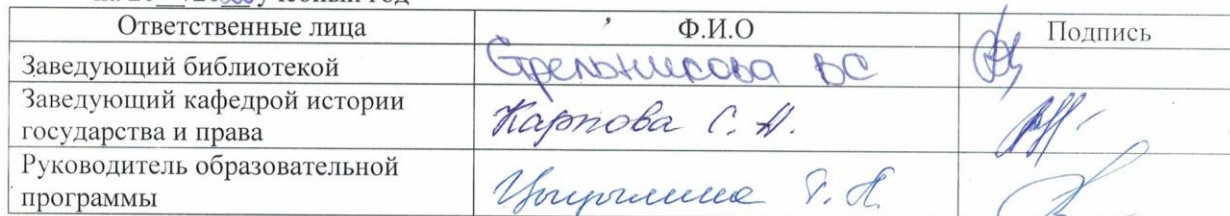 учебный год
Ответственные лица Ф.И.О Подпись
Заведующий библиотекой Стрельникова ВС
Заведующий кафедрой истории
государства и права Карпова С. А.
Руководитель образовательной
программы